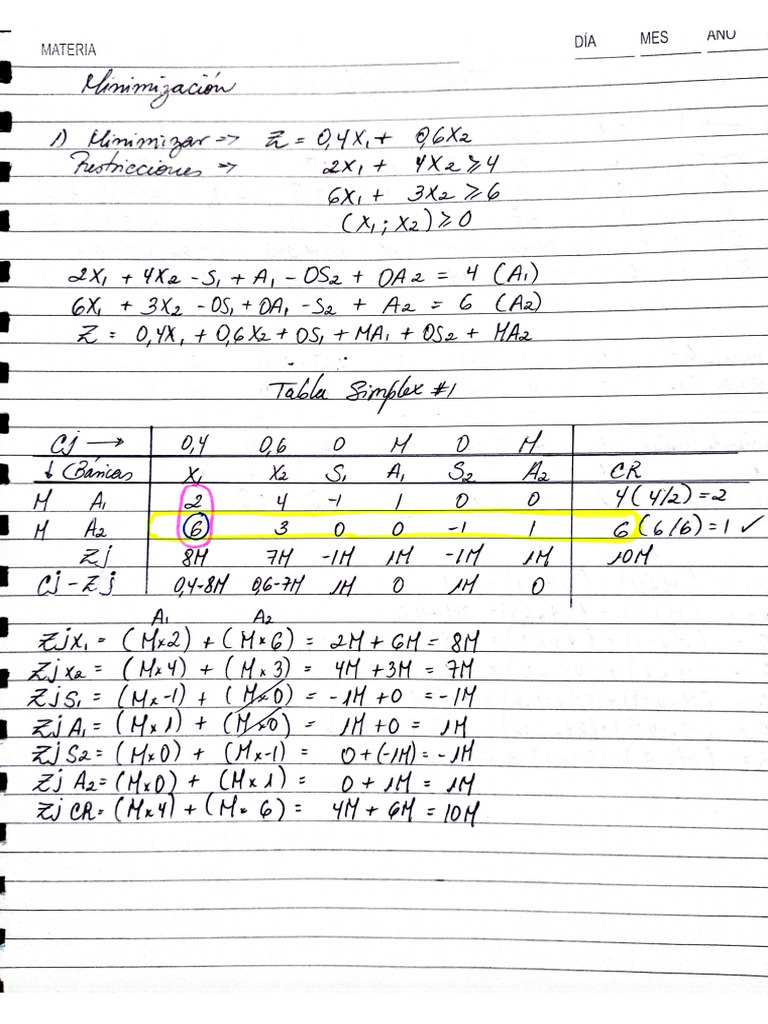 MATERIA
DÍA MES AÑO
Minimización
1) Minimizar => Z = 0,4X₁ + 0,6X₂
Restricciones => 2X₁ + 4X₂ ≥ 4
6X₁ + 3X₂ ≥ 6
(X₁ ; X₂) ≥ 0
2X₁ + 4X₂ - S₁ + A₁ - 0S₂ + 0A₂ = 4 (A₁)
6X₁ + 3X₂ - 0S₁ + 0A₁ - S₂ + A₂ = 6 (A₂)
Z = 0,4X₁ + 0,6X₂ + 0S₁ + MA₁ + 0S₂ + MA₂
Tabla Simplex #1
Cj → 0,4 0,6 0 M 0 M
↓ (Básicas X₁ X₂ S₁ A₁ S₂ A₂ CR
M A₁ 2 4 -1 1 0 0 4 (4/2) = 2
M A₂ 6 3 0 0 -1 1 6 (6/6) = 1 ✓
Zj 8M 7M -1M 1M -1M 1M 10M
Cj - Zj 0,4-8M 0,6-7M 1M 0 1M 0
A₁ A₂
ZjX₁ = (M×2) + (M×6) = 2M + 6M = 8M
ZjX₂ = (M×4) + (M×3) = 4M + 3M = 7M
ZjS₁ = (M×-1) + (M×0) = -1M + 0 = -1M
ZjA₁ = (M×1) + (M×0) = 1M + 0 = 1M
ZjS₂ = (M×0) + (M×-1) = 0 + (-1M) = -1M
ZjA₂ = (M×0) + (M×1) = 0 + 1M = 1M
ZjCR = (M×4) + (M×6) = 4M + 6M = 10M